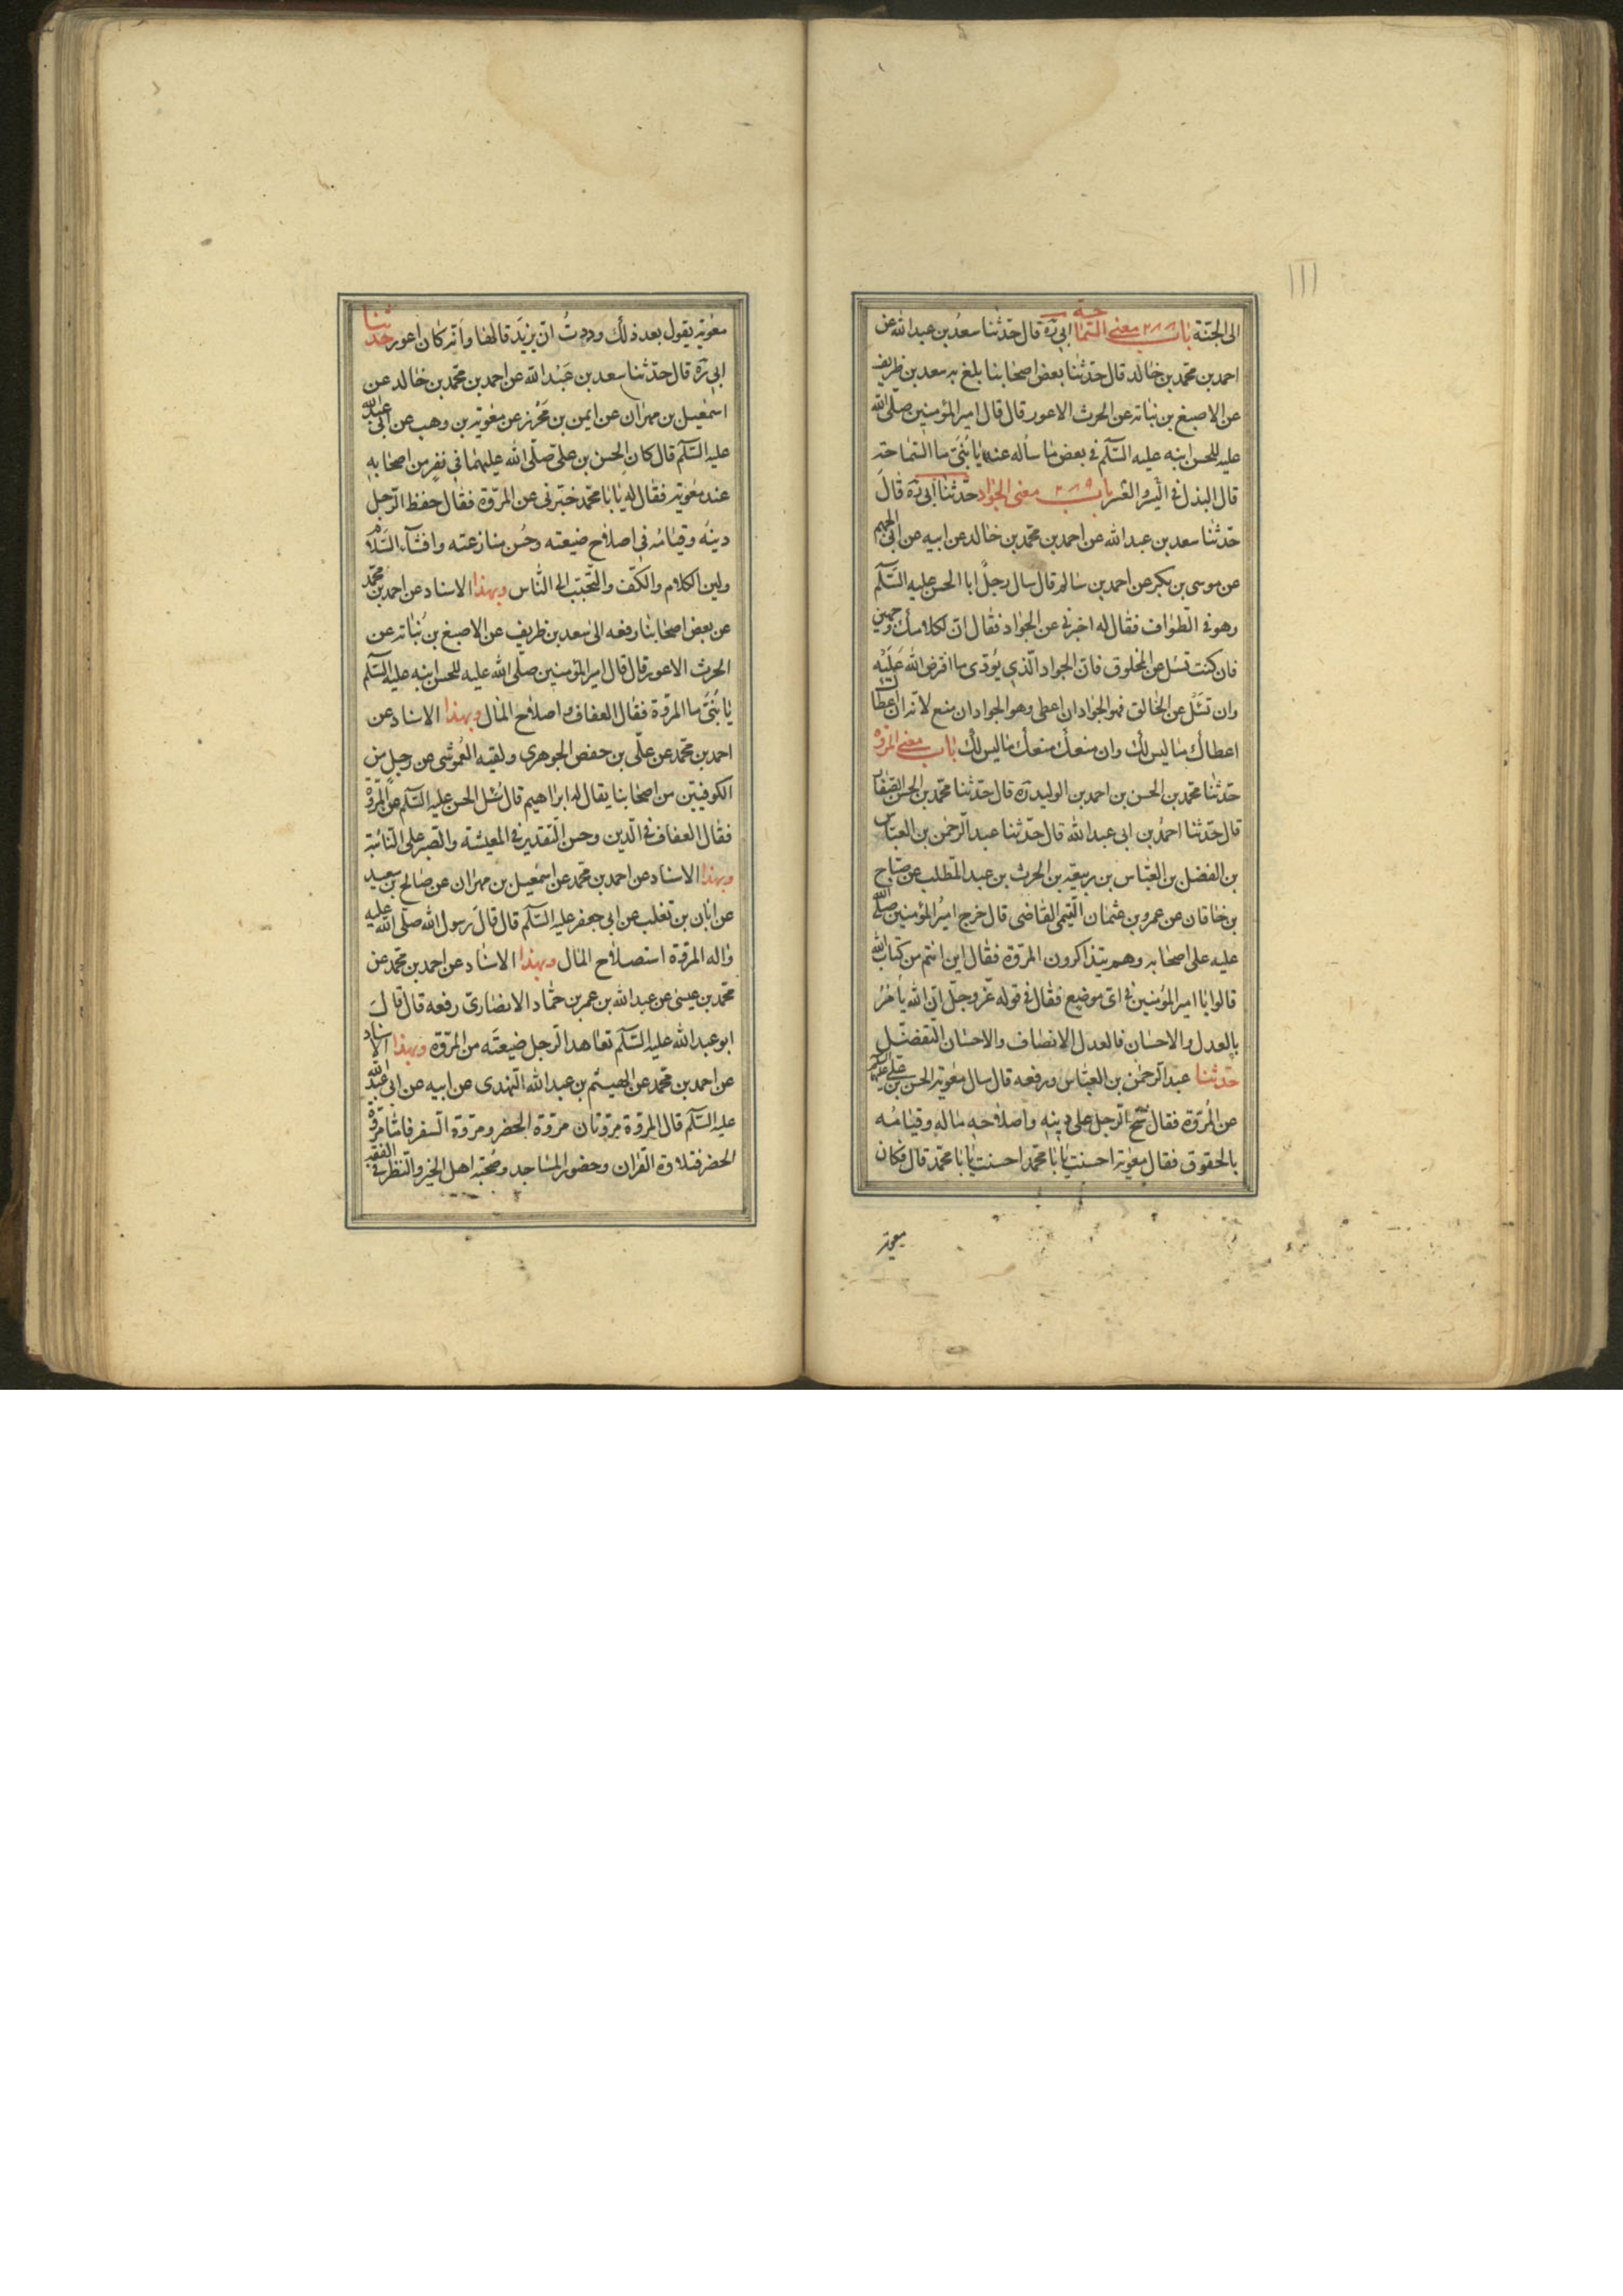 الى الجنّة باب ٢٨٨ معنى السماحة ابى ره قال حدّثنا سعد بن عبد الله عن
احمد بن محمّد بن خالد قال حدّثنا بعض اصحابنا بلغ به سعد بن ظريف
عن الاصبغ بن نباته عن الحرث الاعور قال قال امير المؤمنين صلّى الله
عليه للحسن ابنه عليه السّلم فى بعض ما سأله عنه يا بُنَىّ ما السّماحة
قال البذل فى اليسر والعسر باب معنى الجواد حدّثنا ابى ره قال
حدّثنا سعد بن عبد الله عن احمد بن محمّد بن خالد عن ابيه عن ابى الجهم
عن موسى بن بكر عن احمد بن سالم قال سال رجلٌ ابا الحسن عليه السّلم
وهو فى الطّواف فقال له اخبرنى عن الجواد فقال انّ لكلامك وجهين
فان كنت تسئل عن المخلوق فانّ الجواد الّذى يُؤدّى ما افترض الله عَلَيْه
وان تسئل عن الخالق فهو الجواد ان اعطى وهو الجواد ان منع لانّه ان اعطاك
اعطاك ما ليس لك وان منعك منعك ما ليس لك باب معنى المروّة
حدّثنا محمّد بن الحسن بن احمد بن الوليد ره قال حدّثنا محمّد بن الحسن الصّفار
قال حدّثنا احمدُ بن ابى عبد الله قال حدّثنا عبد الرّحمن بن العبّاس
بن الفضل بن العبّاس بن ربيعة بن الحرث بن عبد المطّلب عن صبّاح
بن خاقان عن عمرو بن عثمان التّيمى القاضى قال خرج اميرُ المؤمنين صلّى الله
عليه على اصحابه وهم يتذاكرون المروّة فقال اين انتم من كتاب الله
قالوا يا امير المؤمنين فى اىّ موضع فقال فى قوله عزّ وجلّ انّ الله يأمُرُ
بالعدل والاحسان فالعدل الانصاف والاحسان التّفضّل
حدّثنا عبد الرّحمن بن العبّاس ورفعه قال سال معٰوية الحسن بن علىّ عليهما السّلم
عن المُروّة فقال شحّ الرّجل على دينِه واصلاحه ماله وقيامُه
بالحقوق فقال معٰوية احسنت يا با محمّد احسنت يا با محمّد قال فكان
معوية
معٰوية يقول بعد ذلك وددتُ انّ يزيدَ قالها وانّه كان اعور حدّثنا
ابى ره قال حدّثنا سعد بن عَبْد الله عن احمد بن محمّد بن خالد عن
اسمٰعيل بن مهران عن ايمن بن مُحْرز عن معٰوية بن وهب عن ابى عبد الله
عليه السّلم قال كان الحسن بن على صلّى الله عليهما فى نفرٍ من اصحابه
عند معٰوية فقال له يا با محمّد خبّرنى عن المروّة فقال حفظ الرّجل
دينَه وقيامُه فى اصلاح ضيعته وحُسن منازعته وافشاء السّلام
ولين الكلام والكفّ والتّحبّب الى النّاس وبهذا الاسناد عن احمد بن محمّد
عن بعض اصحابنا رفعه الى سعد بن ظريف عن الاصبغ بن نُباته عن
الحرث الاعور قال قال امير المؤمنين صلّى الله عليه للحسن ابنه عليه السّلم
يا بُنَىَّ ما المروّة فقال العفاف واصلاح المال وبهذا الاسناد عن
احمد بن محمّد عن علىّ بن حفص الجوهرى ولقبه القُموشى عن رجلٍ من
الكوفيّين من اصحابنا يقال له ابراهيم قال سُئل الحسن عليه السّلم عن المروّة
فقال العفاف فى الدّين وحسن التّقدير فى المعيشة والصّبر على النّائبة
وبهذا الاسناد عن احمد بن محمّد عن اسمٰعيل بن مهران عن صالح بن سعيد
عن ابان بن تغلب عن ابى جعفر عليه السّلم قال قالَ رسول الله صلّى الله عليه
واٰله المروّة استصلاح المال وبهذا الاسناد عن احمد بن محمّد عن
محمّد بن عيسى عن عبد الله بن عمر بن حمّاد الانصارى رفعه قال قالَ
ابو عبد الله عليه السّلم تعاهد الرّجل ضيعتَه من المُروّة وبهذا الاسناد
عن احمد بن محمّد عن الهيثم بن عبد الله النّهدى عن ابيه عن ابى عبد الله
عليه السّلم قال المروّة مروّتان مروّة الحضر ومروّة السّفر فامّا مروّة
الحضر فتلاوة القران وحضور المساجد وصُحبة اهل الخير والنّظر فى الفقه